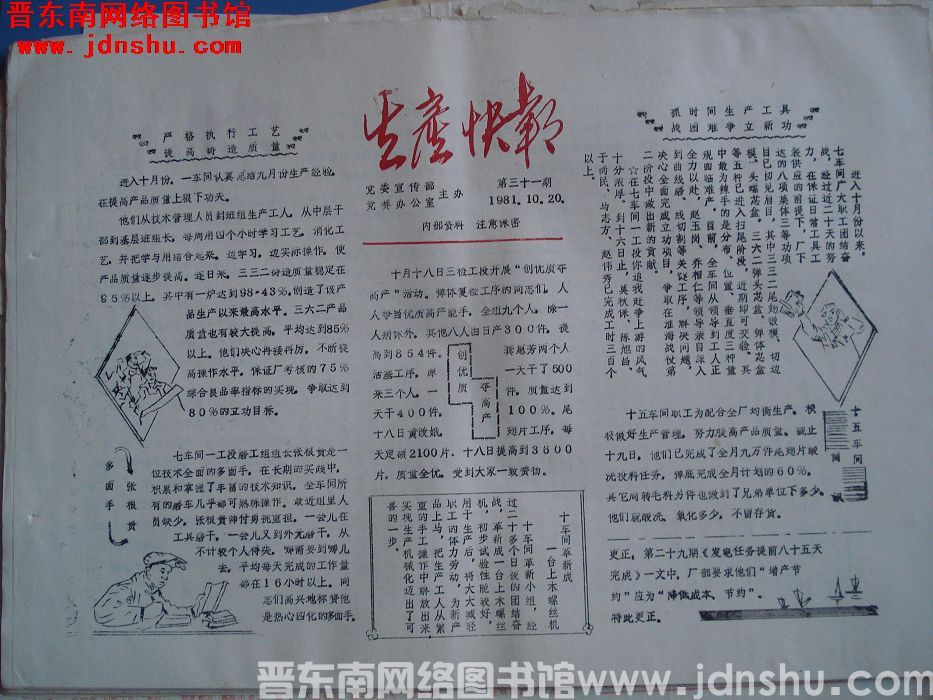 晋东南网络图书馆
www.jdnshu.com
生产快报
党委宣传部
党委办公室
主办
第三十一期
1981.10.20.
内部资料 注意保密
严格执行工艺
提高铸造质量
进入十月份，一车间认真总结九月份生产经验，
在提高产品质量上狠下功夫。
他们从技术管理人员到班组生产工人，从中层干
部到基层班组长，每周用四个小时学习工艺，消化工
艺，并把学与用结合起来，边学习，边实际操作，使
产品质量逐步提高。连日来，三三二份造质量稳定在
96%以上，其中有一炉达到98.43%，创造了该产
品生产以来最高水平。三六二产品
质量也有较大提高，平均达到85%
以上。他们决心再接再厉，不断提
高操作水平，保证厂考核的75%
综合良品率指标的实现，争取达到
80%的立功目标。
多面手 张根贵
七车间一工段磨工组组长张根贵是一
位技术全面的多面手。在长期的实践中，
积累和掌握了丰富的技术知识，全车间所
有的磨车几乎都可熟练操作。最近组里人
员缺少，张根贵师付勇挑重担，一会儿在
工具磨干，一会儿又到外元磨干，从
不计较个人得失，哪需要到哪儿
去。平均每天完成的工作量
都在16小时以上。同
志们高兴地称赞他
是热心四化的多面手。
十月十八日三检工段开展“创优质夺
高产”活动。弹体复检工序的同志们，人
人争当优质高产能手，全组九个人，除一
人病休外，其他八人由日产300件，提
高到854件。 龚恩芳两个人
活塞工序，原 一天干了500
来三个人，一 件，质量达到
天干400件， 100%。尾
十八日黄改娥、 翅片工序，每
创优质
夺高产
天定额2100片，十八日提高到3600
片，质量全优，受到大家一致赞扬。
十车间革新成
一台上木螺丝机
十车间革新小组，经
过二十多个日夜的团结奋
战，革新成一台上木螺丝
机，初步试验性能较好。
用于生产后，将大大减轻
职工的体力劳动，为新产
品上马，把生产工人从繁
重的手工操作中解放出来，
实现生产机械化迈出了可
喜的一步。
抓时间生产工具
战困难争立新功
进入十月份以来，
七车间广大职工团结奋
战，经过近二十天的努
力，在保证日常工具工
装供应的前提下，厂下
达的八项集体三等功项
目已初见眉目，其中三三二尾翅锻模、切边
模、头螺芯盒，三六二弹头芯盒、弹体芯盒
等五种已进入扫尾阶段，近期即可交验。其
中最为棘手的是分布、位置、垂直度三种量
规面临难产。目前，全车间从领导到工人正
全力以赴，赵玉岗、乔相仁等领导亲自深入
到曲线磨、线切割等关键工序，解决问题，
决心全面完成立功项目，争取在淮海战役第
二阶段中做出新的贡献。
☆在七车间一工段你追我赶争上游的风气
十分浓厚。到十六日止，莫秋保、陈旭昌、
于尚民、马志方、赵伟秀已完成工时三百个
以上。
十五车间
十五车间职工为配合全厂均衡生产，积
极做好生产管理，努力提高产品质量。截止
十九日，他们已完成了全月九万件尾翅片酸
洗没料任务，弹底完成全月计划的60%。
其它间转毛料另件也做到了兄弟单位下多少，
他们就酸洗、氧化多少，不留存货。
更正：第二十九期《发电任务提前八十五天
完成》一文中，厂部要求他们“增产节
约”应为“降低成本、节约”。
特此更正。
晋东南网络图书馆 www.jdnshu.com